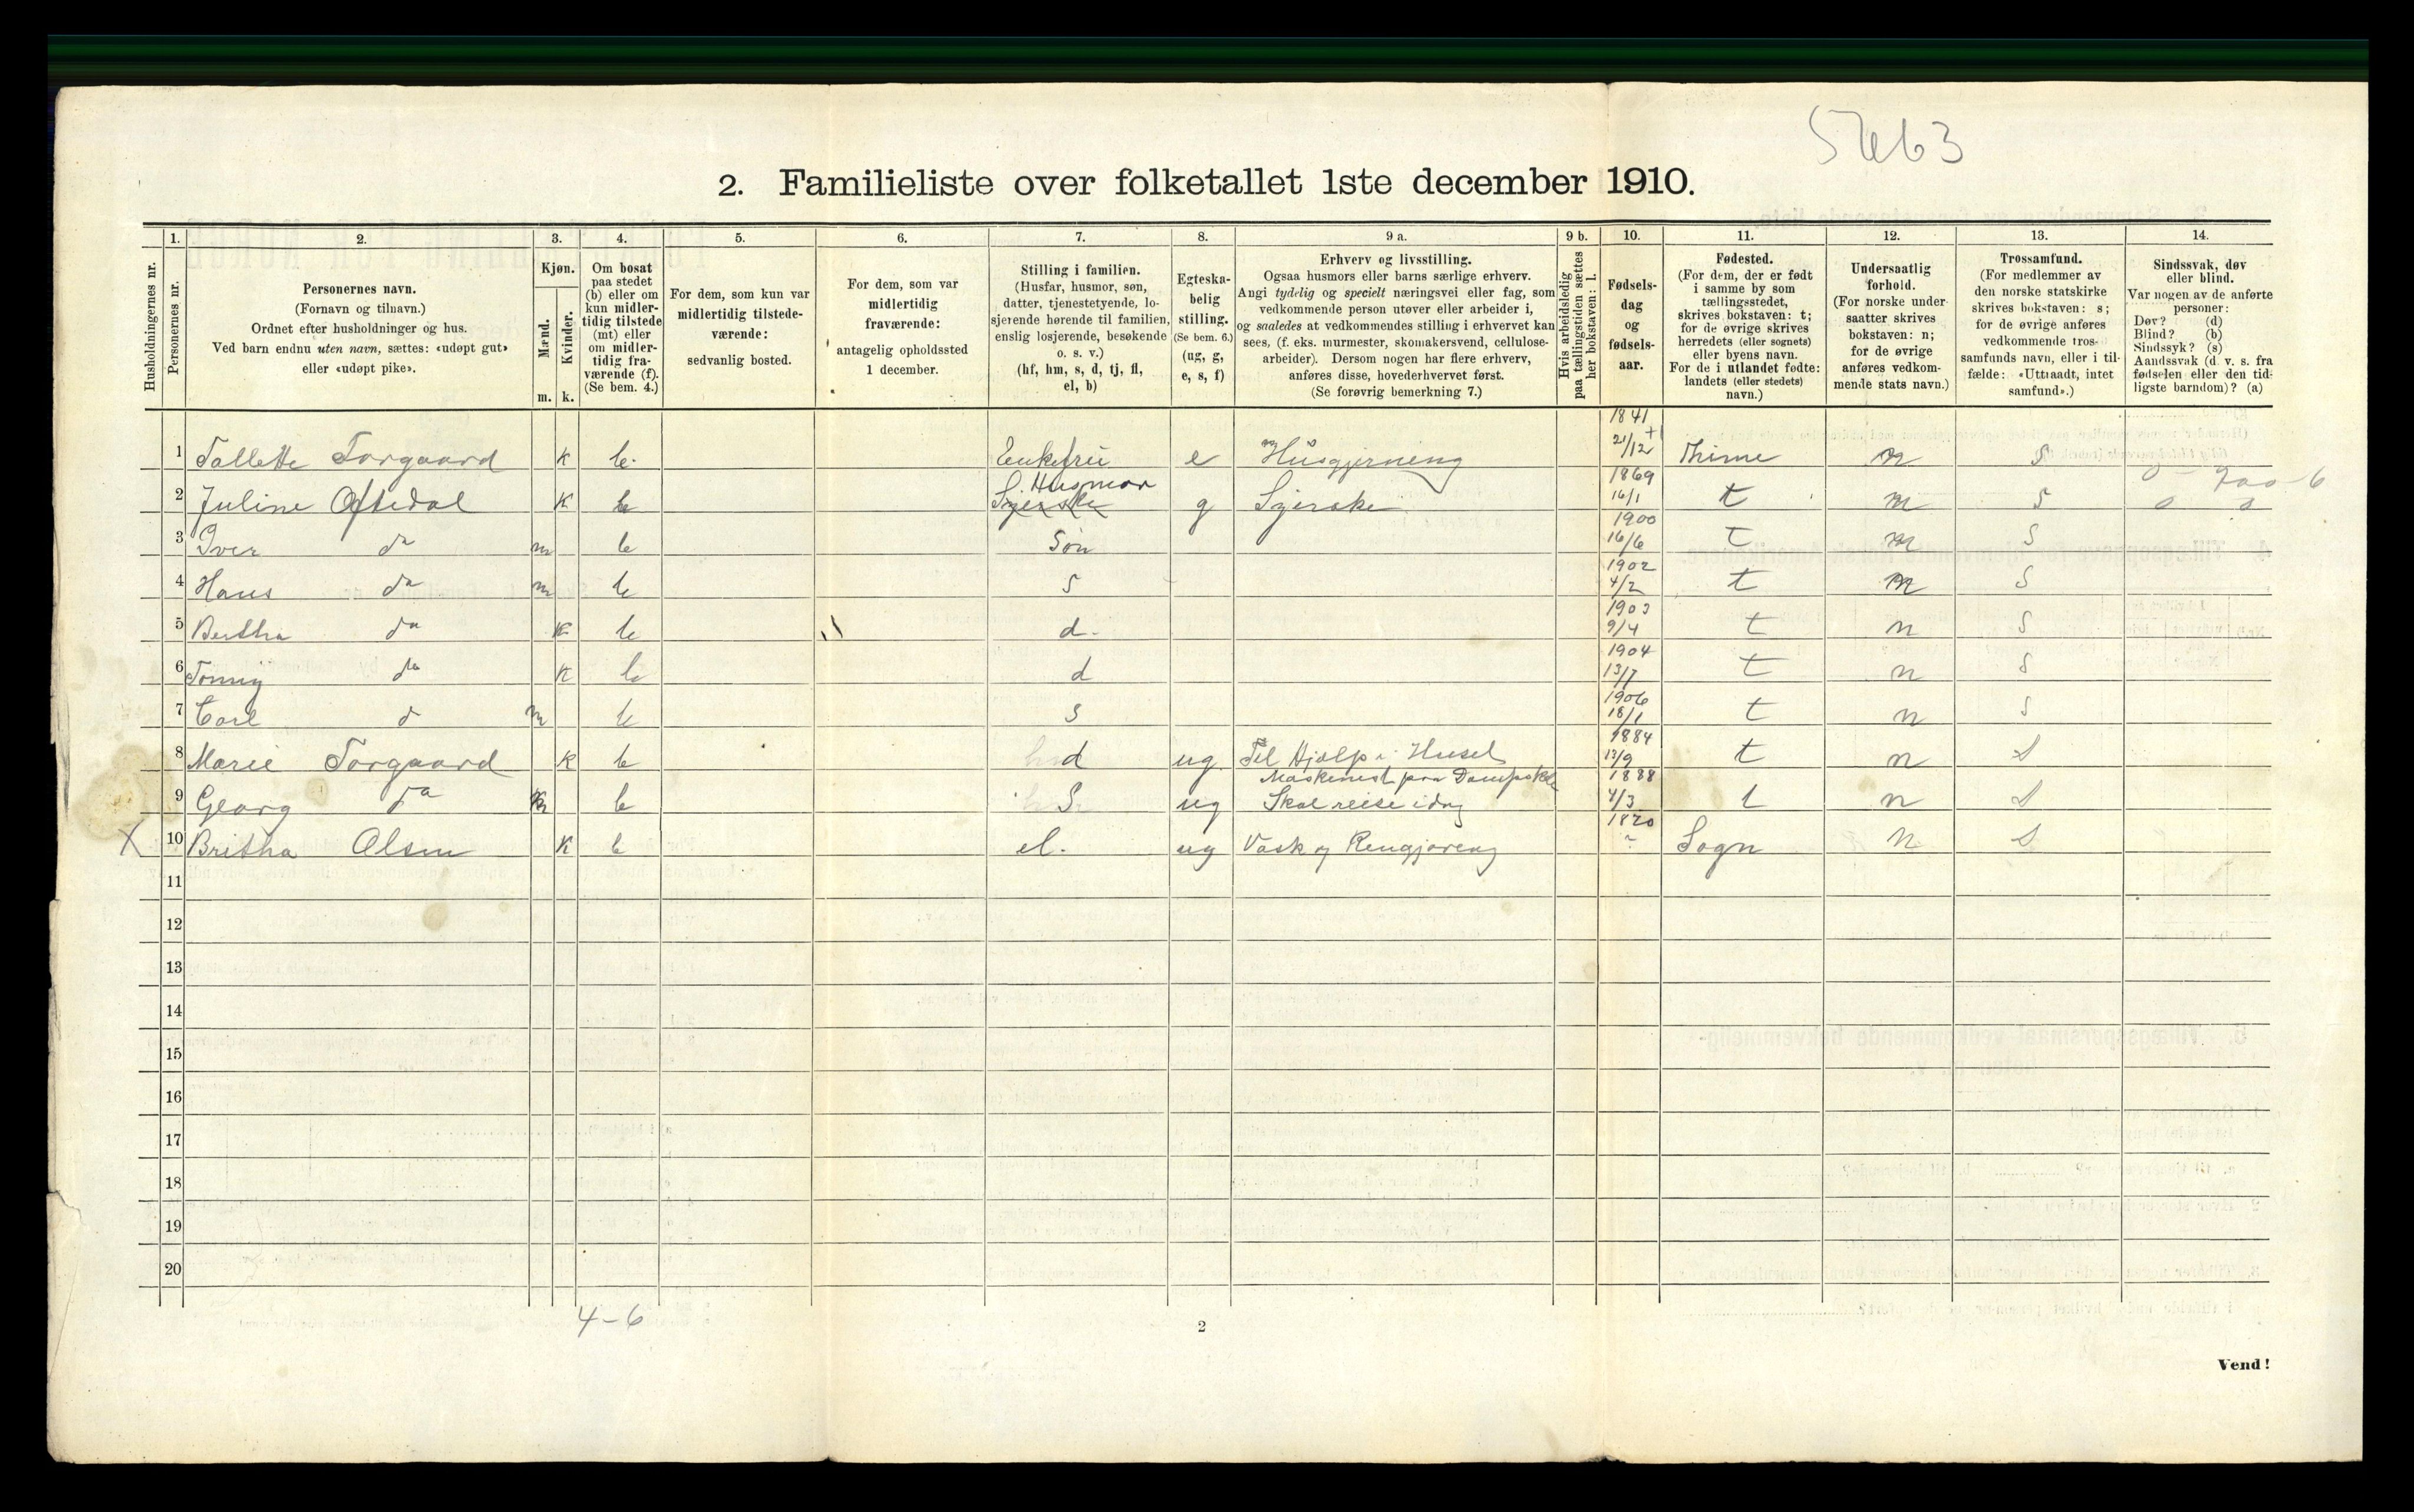 5 tb 3
2. Familieliste over folketallet 1ste december 1910.
Husholdningernes nr.
1. Personernes nr.
2. Personernes navn.
(Fornavn og tilnavn.)
Ordnet efter husholdninger og hus.
Ved barn endnu uten navn, sættes: «udøpt gut»
eller «udøpt pike».
3. Kjøn.
Mænd. m.
Kvinder. k.
4. Om bosat
paa stedet
(b) eller om
kun midler-
tidig tilstede
(mt) eller
om midler-
tidig fra-
værende (f).
(Se bem. 4.)
5. For dem, som kun var
midlertidig tilstede-
værende:
sedvanlig bosted.
6. For dem, som var
midlertidig
fraværende:
antagelig opholdssted
1 december.
7. Stilling i familien.
(Husfar, husmor, søn,
datter, tjenestetyende, lo-
sjerende hørende til familien,
enslig losjerende, besøkende
o. s. v.)
(hf, hm, s, d, tj, fl,
el, b)
8. Egteska-
belig
stilling.
(Se bem. 6.)
(ug, g,
e, s, f)
9 a. Erhverv og livsstilling.
Ogsaa husmors eller barns særlige erhverv.
Angi tydelig og specielt næringsvei eller fag, som
vedkommende person utøver eller arbeider i,
og saaledes at vedkommendes stilling i erhvervet kan
sees, (f. eks. murmester, skomakersvend, cellulose-
arbeider). Dersom nogen har flere erhverv,
anføres disse, hovederhvervet først.
(Se forøvrig bemerkning 7.)
9 b. Hvis arbeidsledig
paa tællingstiden sættes
her bokstaven: l.
10. Fødsels-
dag
og
fødsels-
aar.
11. Fødested.
(For dem, der er født
i samme by som
tællingsstedet,
skrives bokstaven: t;
for de øvrige skrives
herredets (eller sognets)
eller byens navn.
For de i utlandet fødte:
landets (eller stedets)
navn.)
12. Undersaatlig
forhold.
(For norske under-
saatter skrives
bokstaven: n;
for de øvrige
anføres vedkom-
mende stats navn.)
13. Trossamfund.
(For medlemmer av
den norske statskirke
skrives bokstaven: s;
for de øvrige anføres
vedkommende tros-
samfunds navn, eller i til-
fælde: «Uttraadt, intet
samfund».)
14. Sindssvak, døv
eller blind.
Var nogen av de anførte
personer:
Døv? (d)
Blind? (b)
Sindssyk? (s)
Aandssvak (d. v. s. fra
fødselen eller den tid-
ligste barndom)? (a)
1 Tallette Torgaard k b. Enkefru e Husgjerning 1841 21/12 Thime n S
2 Juline Oftedal k b Syerske Husmor g Syerske 1869 16/1 t n S
3 Iver do m b Søn 1900 16/6 t n S
4 Hans do m b S 1902 4/2 t n S
5 Bertha do k b d. 1903 9/4 t n S
6 Tonny do k b d 1904 13/7 t n S
7 Carl d m b S 1906 18/1 t n S
8 Marie Torgaard k b d ug Til Hjælp i Huset 1884 13/9 t n S
9 Georg do m b S ug Maskinist paa Dampskib
Skal reise idag 1888 4/3 t n S
X 10 Britha Olsen k b el. ug Vask og Rengjøring 1820 Sogn n S
11
12
13
14
15
16
17
18
19
20
4-6
2
Vend!